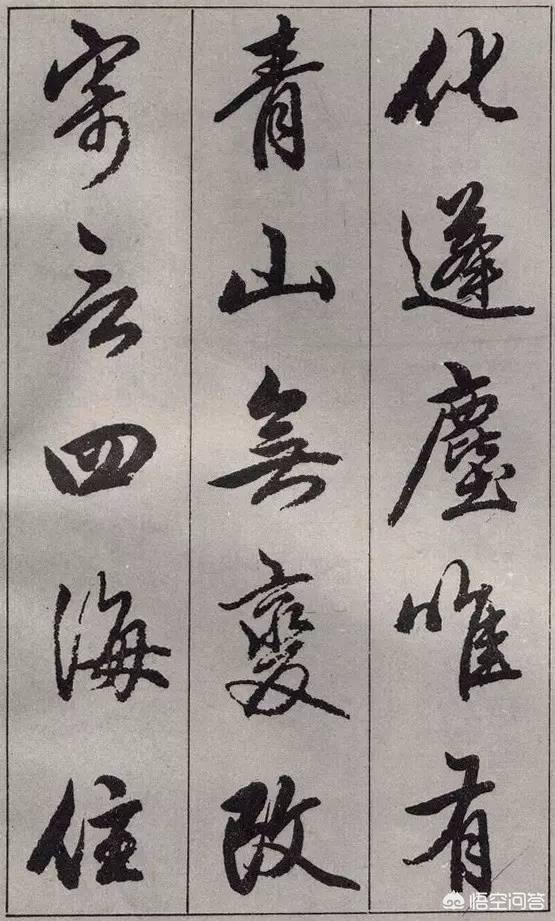 化蓬塵唯有
青山無變改
寄言四海住
悟空问答